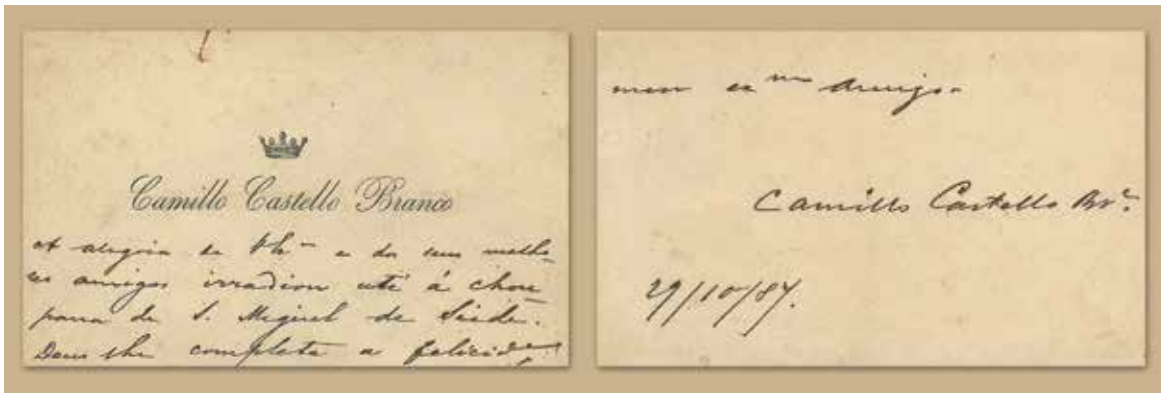 Camillo Castello Branco
A alegria de V. Ex.ª e dos seus melho-
res amigos irradiou até á chou-
pana de S. Miguel de Seide.
Deus lhe complete a felicid.e
meu ex.mo amigo.
Camillo Castello Br.co
29/10/87.